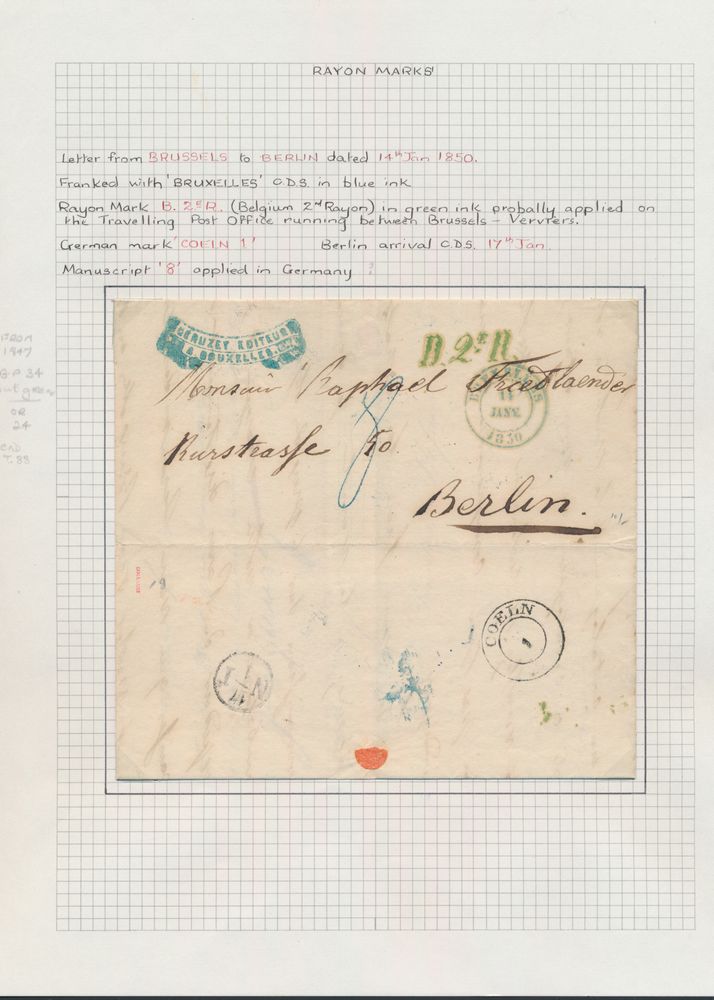 RAYON MARKS'
Letter from BRUSSELS to BERLIN dated 14th Jan 1850.
Franked with 'BRUXELLES' C.D.S. in blue ink
Rayon Mark B. 2E R. (Belgium 2nd Rayon) in green ink probally applied on
the Travelling Post Office running between Brussels - Vervrers.
German mark 'COELN 1' Berlin arrival C.D.S. 17th Jan.
Manuscript '8' applied in Germany ?
FROM
1847
G.P 34
OR
24
T. 88
EDITEUR
A BRUXELLES
B. 2E R.
Monsieur Raphael Friedlaender
14
JANV.
1850
8
Kurstrasse 50
Berlin.
19
COELN
1
N 1